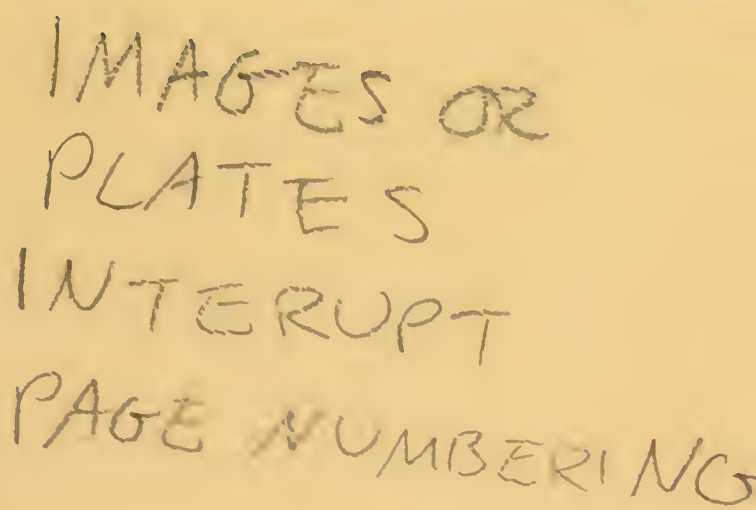 IMAGES OR
PLATES
INTERUPT
PAGE NUMBERING